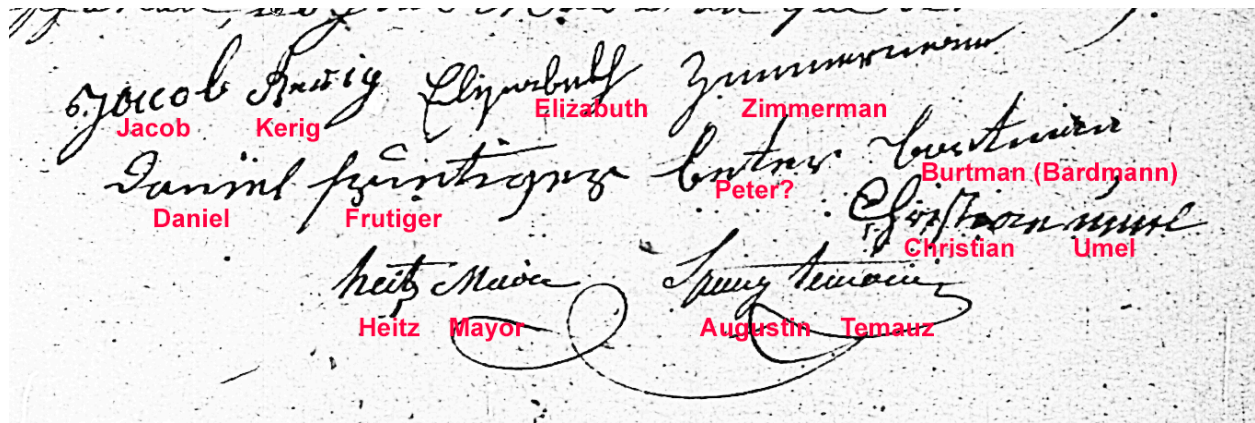 Jacob Kerig Elizabeth Zimmermann
Jacob Kerig Elizabuth Zimmerman
Daniel frutiger beter bortman
Daniel Frutiger Peter? Burtman (Bardmann)
Christian umel
Christian Umel
heitz Maire temoin
Heitz Mayor Augustin Temauz